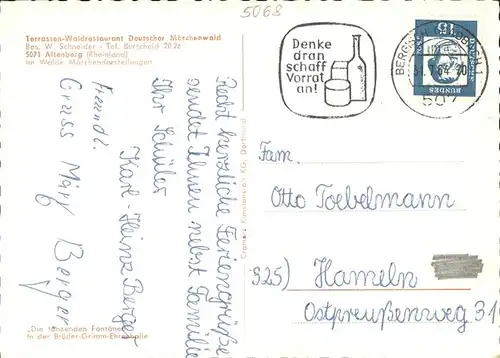 5068
Terrassen-Waldrestaurant Deutscher Märchenwald
Bes. W. Schneider - Tel. Burscheid 2026
5071 Altenberg (Rheinland)
Im Walde Märchendarstellungen
Denke
dran
schaff
Vorrat
an!
BERGISCH
507
15
BUNDES
Recht herzliche Feriengrüße
sendet Ihnen nebst Familie
Ihr Schüler
Karl-Heinz Berger
Freundl.
Gruss
Berger
Cramers Kunstanstalt KG, Dortmund
Fam.
Otto Toebelmann
325) Hameln
Ostpreußenweg
"Die tanzenden Fontänen"
in der Brüder-Grimm-Ehrenhalle